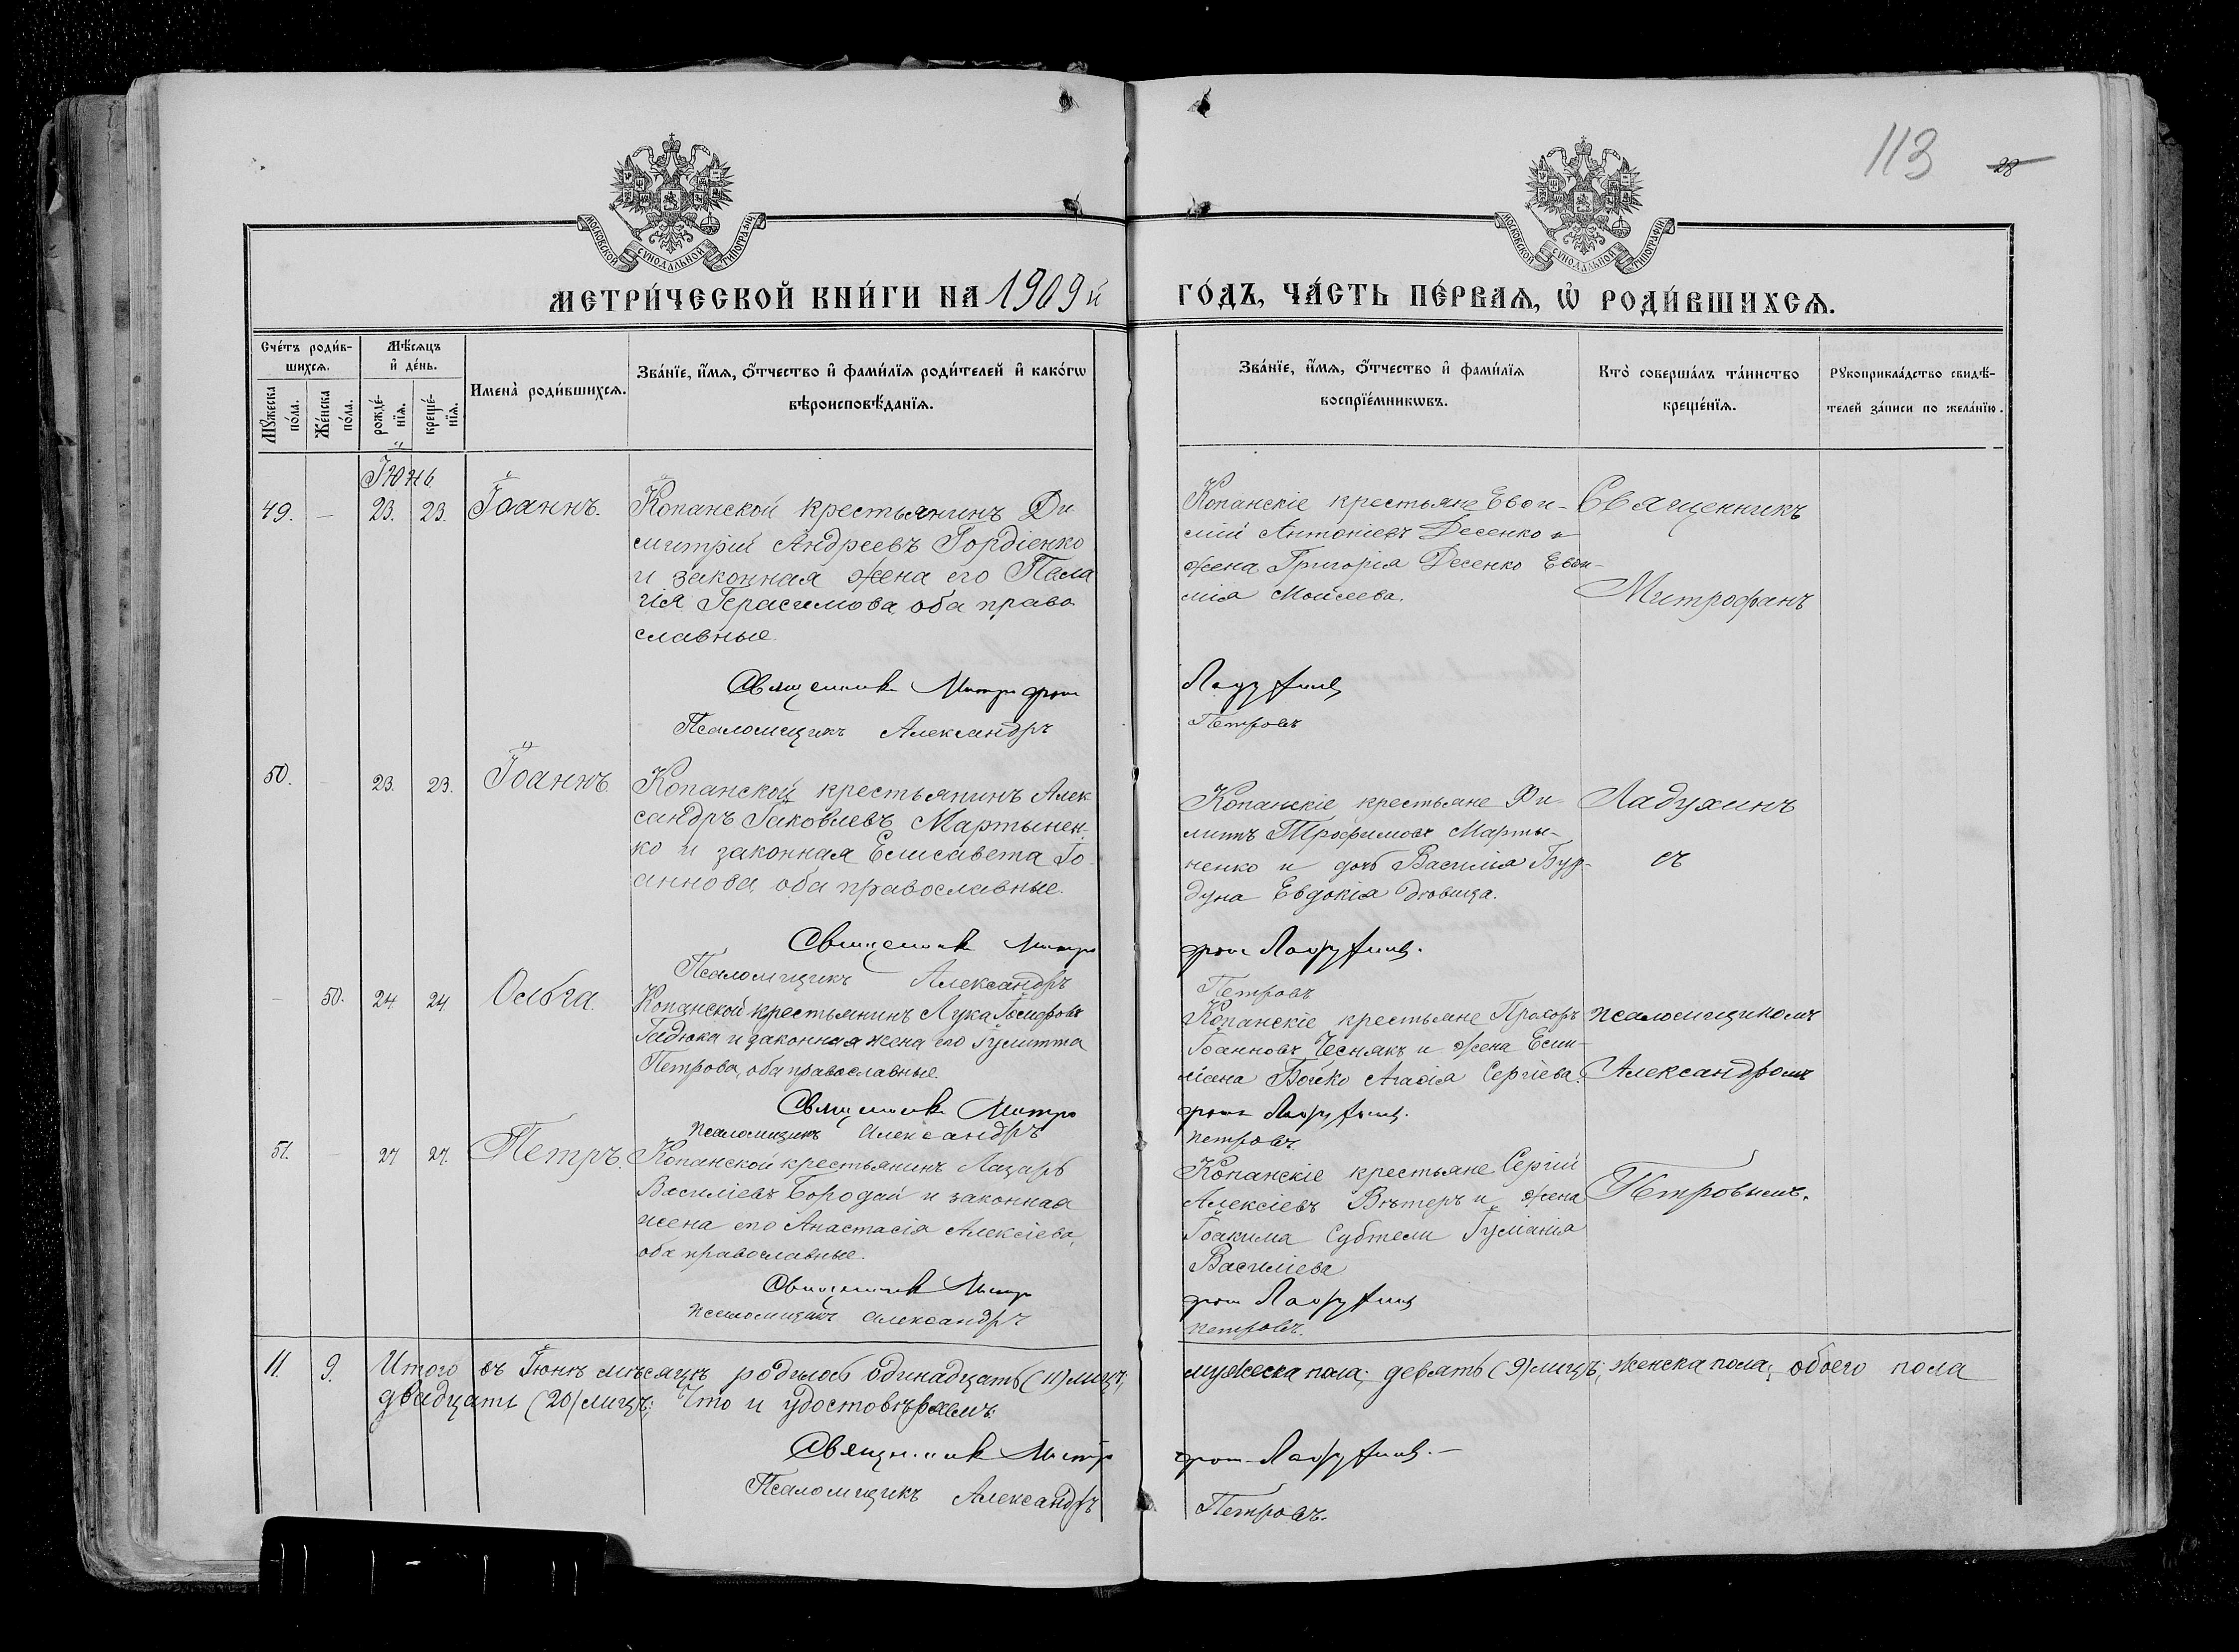 113
28
МОСКОВСКОЙ СУНОДАЛЬНОЙ ТИПОГРАФИИ
МОСКОВСКОЙ СУНОДАЛЬНОЙ ТИПОГРАФИИ
МЕТРИ́ЧЕСКОЙ КНИ́ГИ НА 1909 й
ГО́ДЪ, ЧА́СТЬ ПЕ́РВАѦ, Ѡ҆ РОДИ́ВШИХСѦ.
Сче́тъ роди́в-
шихсѧ.
Мꙋ́жеска по́ла.
Же́нска по́ла.
Мѣ́сѧцъ
и҆ де́нь.
рожде́-
нїѧ.
креще́-
нїѧ.
Имена̀ роди́вшихсѧ.
Зва́нїе, и҆́мѧ, ѻ҆́тчество и҆ фами́лїѧ роди́телей и҆ како́гѡ
вѣроисповѣ́данїѧ.
Зва́нїе, и҆́мѧ, ѻ҆́тчество и҆ фами́лїѧ
воспрїе́мникѡвъ.
Кто̀ соверша́лъ та́инство
креще́нїѧ.
Рꙋкоприкла́дство свидѣ́-
телей за́писи по жела́нїю.
Іюнь
49. — 23. 23. Іоаннъ.
Копанской крестьянинъ Ди
митрій Андреевъ Гордіенко
и законная жена его Пела
гія Герасимова, оба право
славные.
Священникъ Митрофан
Псаломщикъ Александръ
Копанскіе крестьяне Евѳи-
мій Антоніевъ Десенко и
жена Григорія Десенко Евѳи-
мія Моисеева.
Ладухинъ
Петровъ
Священникъ
Митрофанъ
50. — 23. 23. Іоаннъ
Копанской крестьянинъ Алек
сандръ Іаковлевъ Мартынен-
ко и законная Елисавета Іо
аннова оба православные.
Священник Митро
Псаломщикъ Александръ
Копанскіе крестьяне Фи-
липъ Трофимовъ Марты-
ненко и дочь Василія Бур-
дуна Евдокія дѣвица.
фан Ладухинъ.
Петровъ
Ладухинъ
съ
— 50. 24 24 Ольга.
Копанской крестьянинъ Лука Іосифовъ
Гадюка и законная жена его Іулитта
Петрова, оба православные.
Священник Митро
псаломщикъ Александръ
Копанскіе крестьяне Прохоръ
Іоанновъ Чеснякъ и жена Еми-
ліана Бойко Агаѳія Сергіева.
фан Ладухинъ.
петровъ.
псаломщикомъ
Александромъ
51. — 27 27. Петръ.
Копанской крестьянинъ Лазарь
Василіевъ Бородай и законная
жена его Анастасія Алексіева,
оба православные.
Священник Митро
псаломщикъ Александръ
Копанскіе крестьяне Сергій
Алексіевъ Вѣтеръ и жена
Іоакима Субтели Іуліанія
Василіева
фан Ладухинъ
петровъ.
Петровымъ.
11. 9. Итого въ Іюнѣ мѣсяцѣ родилось одинадцать (11) лицъ, мужеска пола; девять (9) лицъ; женска пола; обоего пола
двадцать (20) лицъ; Что и удостовѣряемъ:
Священник Митро
фан Ладухинъ.—
Псаломщикъ Александръ
Петровъ.